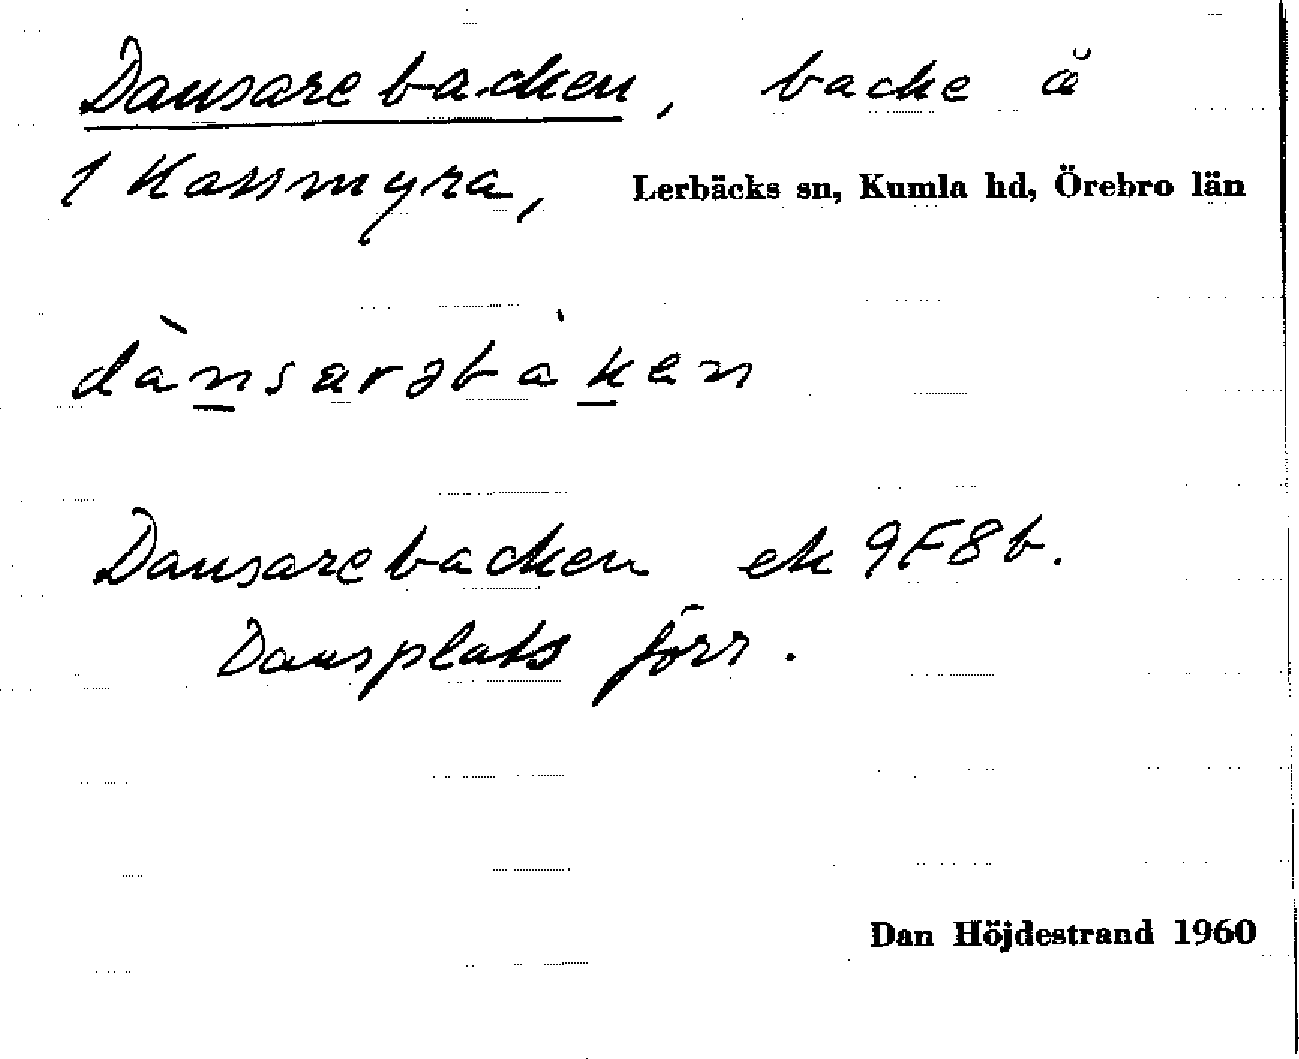 Dansarebacken, backe å
1 Kassmyra, Lerbäcks sn, Kumla hd, Örebro län
dànsarəbàken
Dansarebacken ek 9F8b.
Dansplats förr.
Dan Höjdestrand 1960